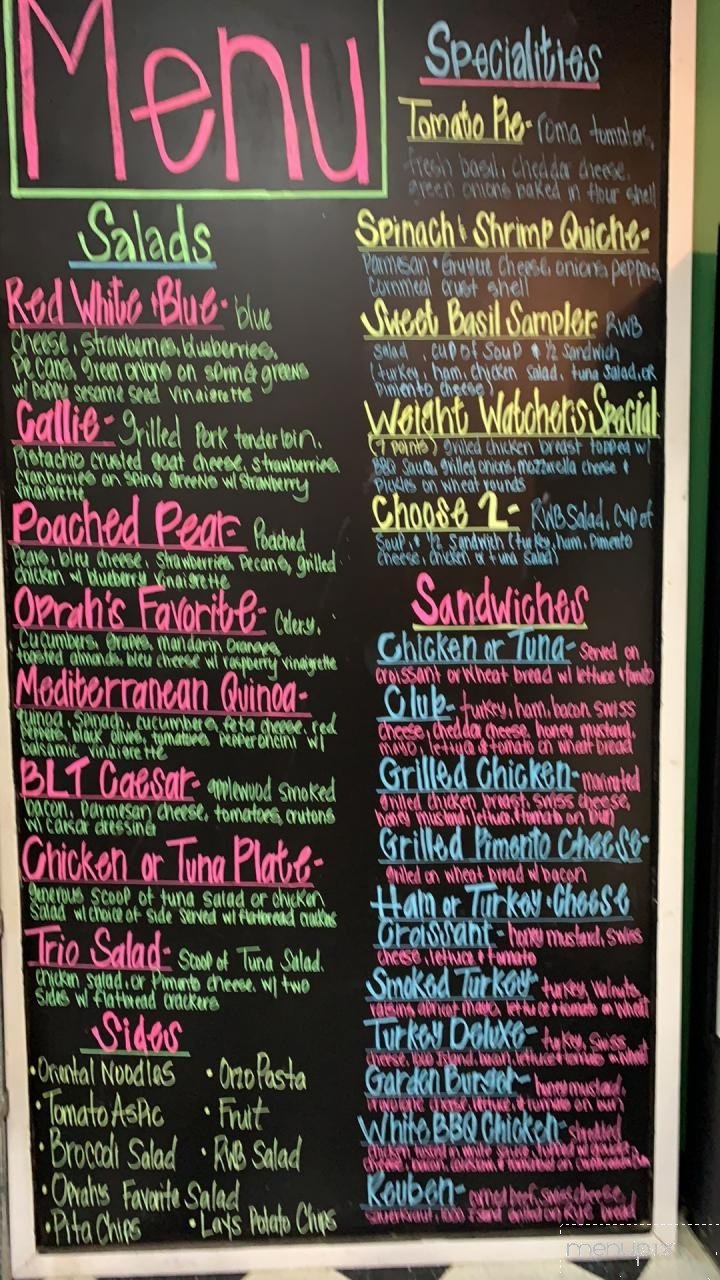 Menu
Salads
Red White & Blue- blue
cheese, strawberries, blueberries,
pecans, green onions on spring greens
w/ poppy sesame seed vinaigrette
Callie- Grilled Pork tenderloin,
Pistachio crusted goat cheese, strawberries,
cranberries on spring greens w/ strawberry
vinaigrette
Poached Pear- Poached
Pears, bleu cheese, strawberries, pecans, grilled
chicken w/ blueberry vinaigrette
Oprah's Favorite- Celery,
cucumbers, grapes, mandarin oranges,
toasted almonds, bleu cheese w/ raspberry vinaigrette
Mediterranean Quinoa-
quinoa, spinach, cucumbers, feta cheese, red
peppers, black olives, tomatoes, pepperoncini w/
balsamic vinaigrette
BLT Caesar- applewood smoked
bacon, parmesan cheese, tomatoes, crutons
w/ caesar dressing
Chicken or Tuna Plate-
generous scoop of tuna salad or chicken
salad w/ choice of side served w/ flatbread crackers
Trio Salad- Scoop of Tuna Salad,
chicken salad, or Pimento cheese, w/ two
sides w/ flatbread crackers
Sides
• Oriental Noodles
• Orzo Pasta
• Tomato Aspic
• Fruit
• Broccoli Salad
• RWB Salad
• Oprah's Favorite Salad
• Pita Chips
• Lays Potato Chips
Specialities
Tomato Pie- roma tomatoes,
fresh basil, cheddar cheese,
green onions baked in flour shell
Spinach & Shrimp Quiche-
Parmesan & Gruyue cheese, onions, peppers,
cornmeal crust shell
Sweet Basil Sampler- RWB
salad, cup of soup & ½ sandwich
(turkey, ham, chicken salad, tuna salad, or
pimento cheese)
Weight Watcher's Special
(7 points) grilled chicken breast topped w/
BBQ Sauce, grilled onions, mozzarella cheese &
pickles on wheat rounds
Choose 2- RWB Salad, Cup of
Soup, & ½ Sandwich (turkey, ham, Pimento
cheese, chicken or tuna salad)
Sandwiches
Chicken or Tuna- Served on
croissant or wheat bread w/ lettuce & tomato
Club- turkey, ham, bacon, swiss
cheese, cheddar cheese, honey mustard,
mayo, lettuce & tomato on wheat bread
Grilled Chicken- marinated
grilled chicken breast, swiss cheese,
honey mustard, lettuce, & tomato on bun
Grilled Pimento Cheese-
grilled on wheat bread w/ bacon
Ham or Turkey & Cheese
Croissant- honey mustard, swiss
cheese, lettuce & tomato
Smoked Turkey- turkey, walnuts,
raisins, apricot mayo, lettuce & tomato on wheat
Turkey Deluxe- turkey, swiss
cheese, 1000 island, bacon, lettuce & tomato on wheat
Garden Burger- honey mustard,
cheese, lettuce, & tomato on bun
White BBQ Chicken- shredded
chicken tossed in white sauce, topped w/
cheese, bacon
Reuben- corned beef, swiss cheese,
sauerkraut, 1000 island grilled on rye bread
menupix